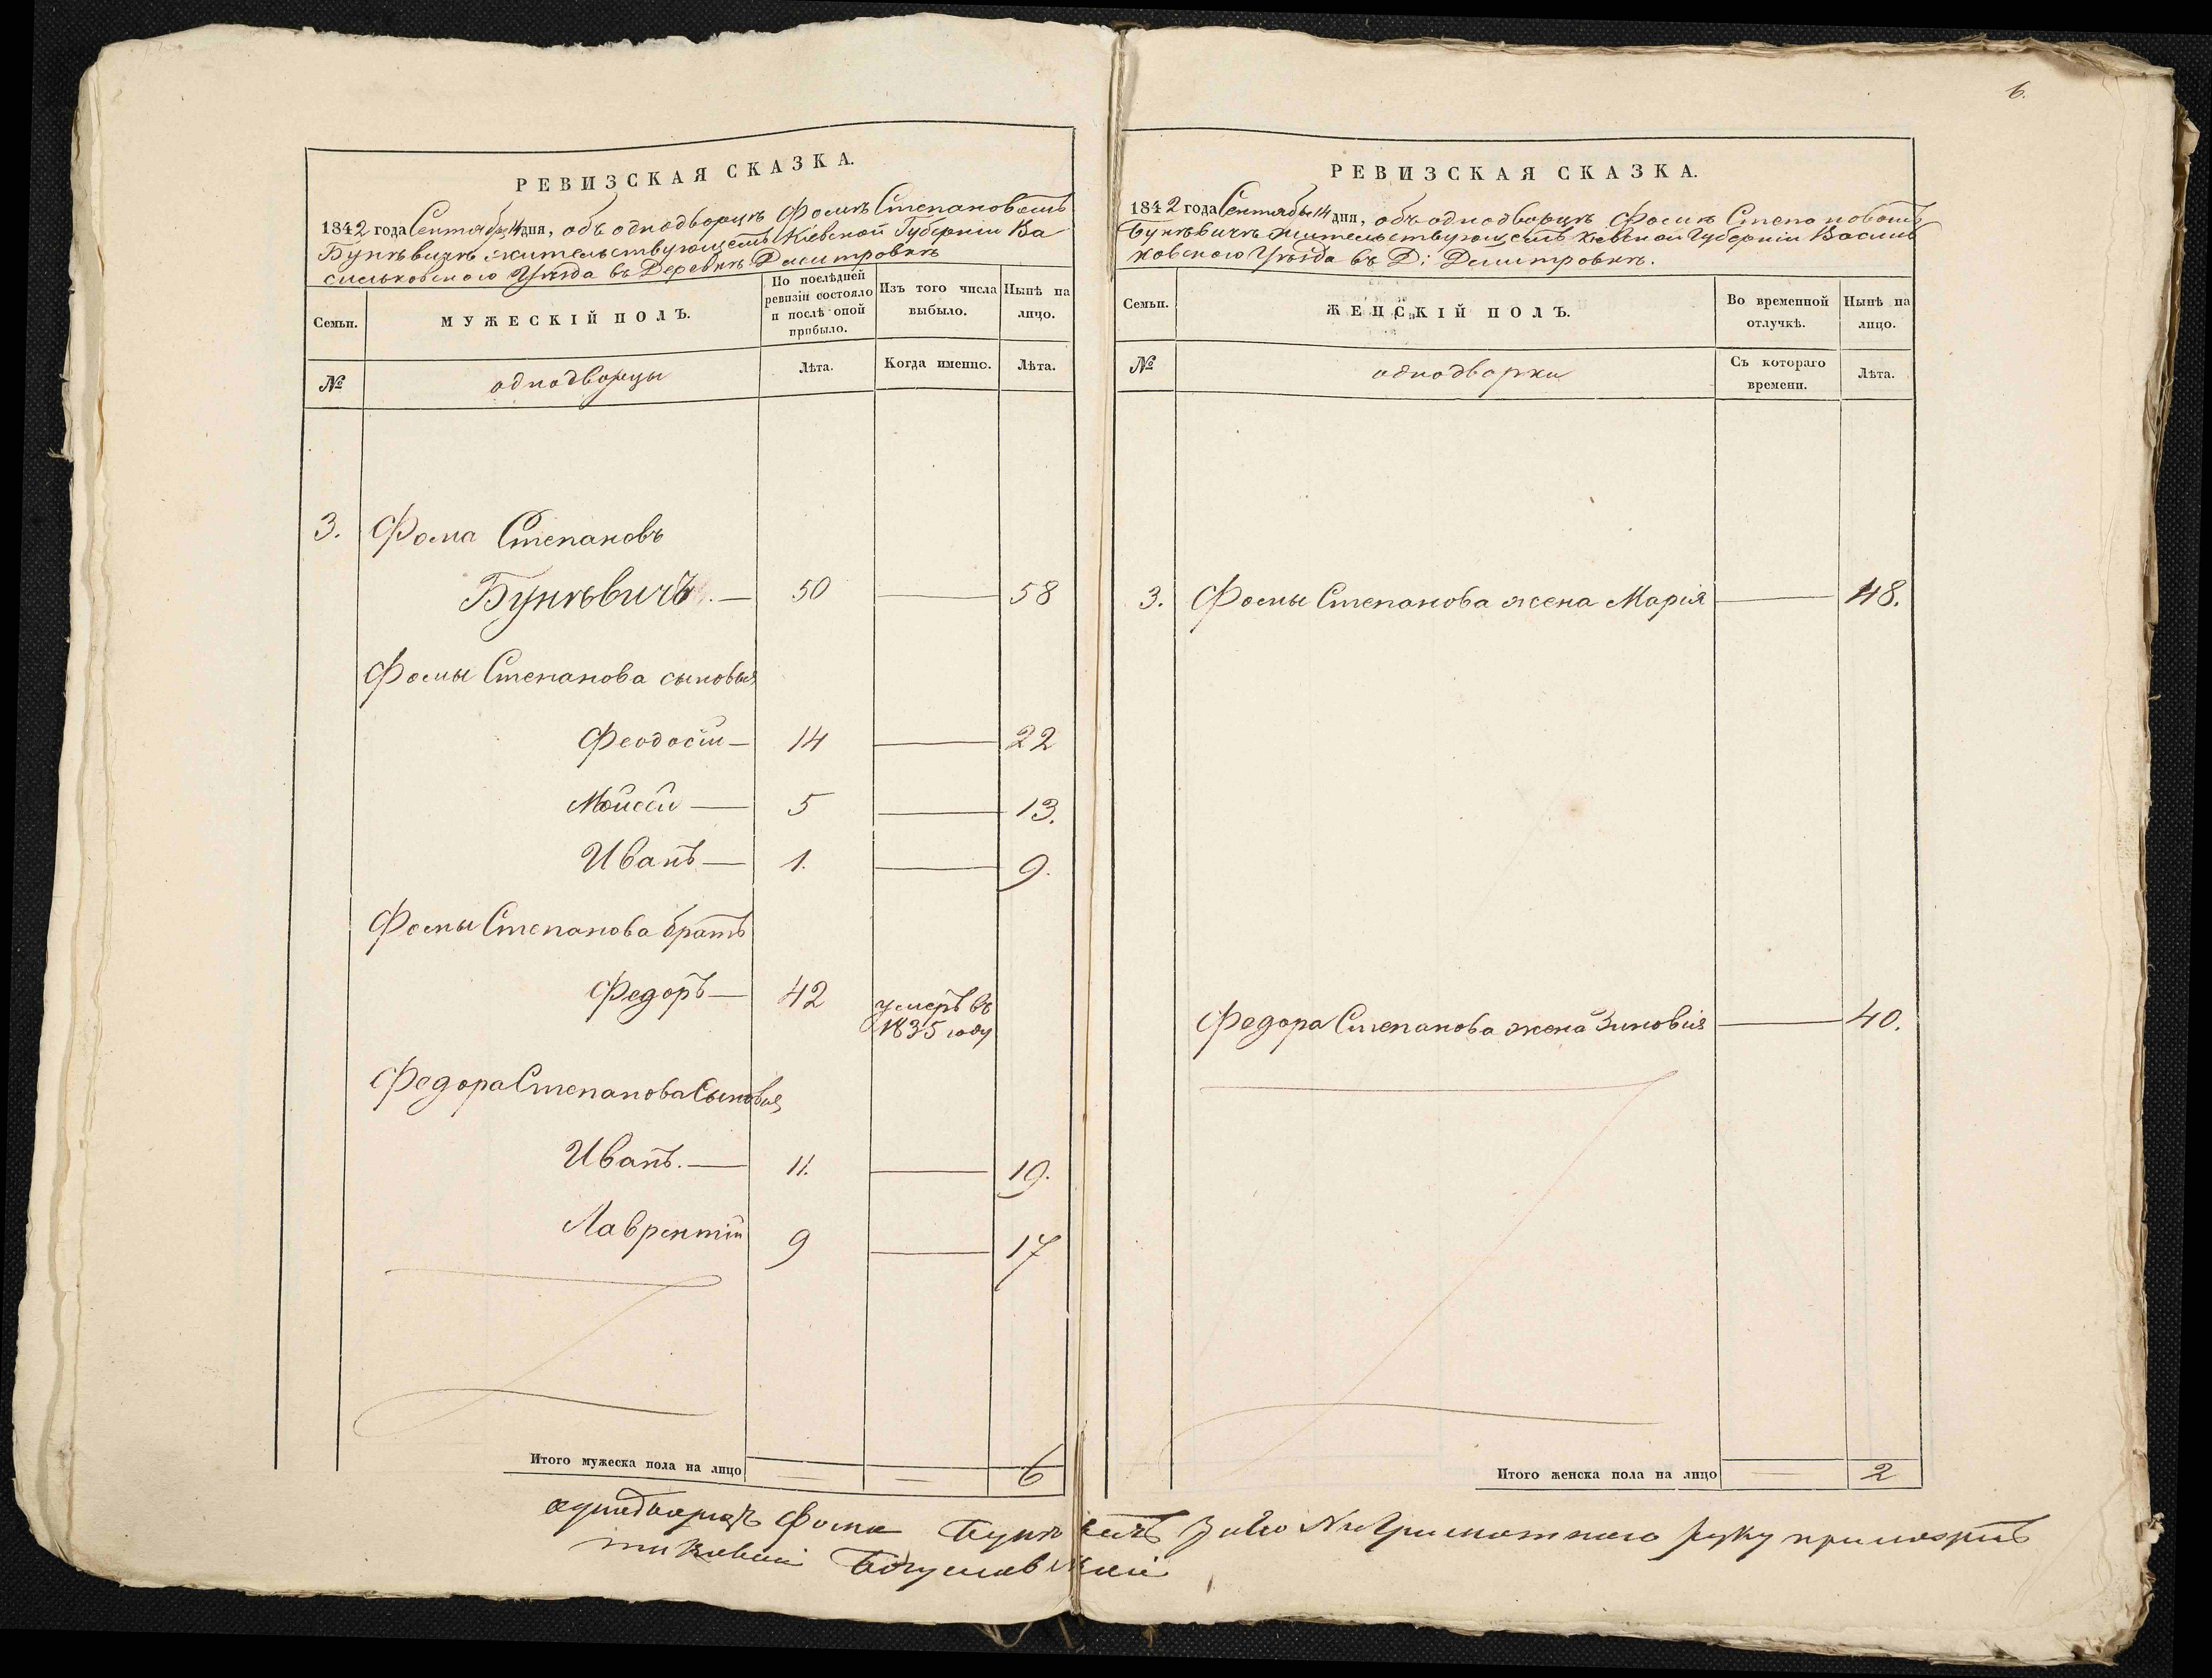 6.
РЕВИЗСКАЯ СКАЗКА.
1842 года Сентября 14 дня, объ однодворцѣ Фомѣ Степановомъ
Бунѣвичѣ жительствующемъ Кіевской Губерніи Ва
сильковского Уѣзда въ Деревнѣ Дмитровкѣ
Семьи.
МУЖЕСКІЙ ПОЛЪ.
По послѣдней ревизіи состояло и послѣ оной прибыло.
Изъ того числа выбыло.
Нынѣ на лицо.
№
однодворцы
Лѣта.
Когда именно.
Лѣта.
3. Фома Степановъ
Бунѣвичъ — 50 — 58
Фомы Степанова сыновья
Феодосій — 14 — 22
Мойсей — 5 — 13.
Иванъ — 1. — 9.
Фомы Степанова братъ
Федоръ — 42 умеръ въ
1835 году
Федора Степанова Сыновья
Иванъ. — 11. — 19.
Лаврентій 9 — 17
Итого мужеска пола на лицо — — 6
РЕВИЗСКАЯ СКАЗКА.
1842 года Сентября 14 дня, объ однодворцѣ Фомѣ Степановомъ
Бунѣвичѣ жительствующемъ Кіевской Губерніи Василь
ковского Уѣзда въ Д: Дмитровкѣ.
Семьи.
ЖЕНСКІЙ ПОЛЪ.
Во временной отлучкѣ.
Нынѣ на лицо.
№
однодворки
Съ котораго времени.
Лѣта.
3. Фомы Степанова жена Марія — 48.
Федора Степанова жена Зиновія — 40.
Итого женска пола на лицо — 2
однодворецъ Фома Бунѣвичъ за его Неграмотнаго руку приложилъ
Богуславскій